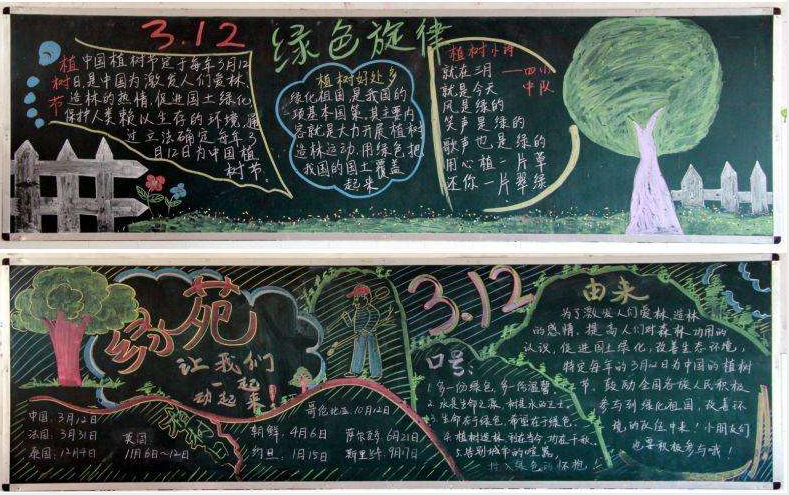 3.12
绿色旋律
植树节
中国植树节定于每年3月12
日,是中国为激发人们爱林、
造林的热情,促进国土绿化,
保护人类赖以生存的环境,通
过立法确定每年3
月12日为中国植
树节。
植树好处多
绿化祖国,是我国的一
项基本国策,其主要内
容就是大力开展植树
造林运动,用绿色把
我国的国土覆盖
起来
植树小诗
——四小
中队
就在三月
就是今天
风是绿的
笑声是绿的
歌声也是绿的
用心植一片草
还你一片翠绿
苑
让我们
一起
动起来!
中国:3月12日
法国:3月31日
泰国:12月
英国
11月6日~12日
朝鲜:4月6日
约旦:1月15日
哥伦比亚10月12日
萨尔瓦多6月21日
斯里兰卡9月7日
3.12
口号:
1.多一份绿色,多一份温馨
2.水是生命之源,树是水的卫士。
3.生命系于绿色,希望在于绿色。
4.植树造林,利在当今,功在千秋。
5.告别城市的喧嚣,
绿色的怀抱!
由来
为了激发人们爱林、造林
的感情,提高人们对森林功用的
认识,促进国土绿化,改善生态环境,
特定每年的3月12日为中国的植树
节,鼓励全国各族人民积极
参与到绿化祖国,改善环
境的攻位中来!小朋友们
也要积极参与哦!